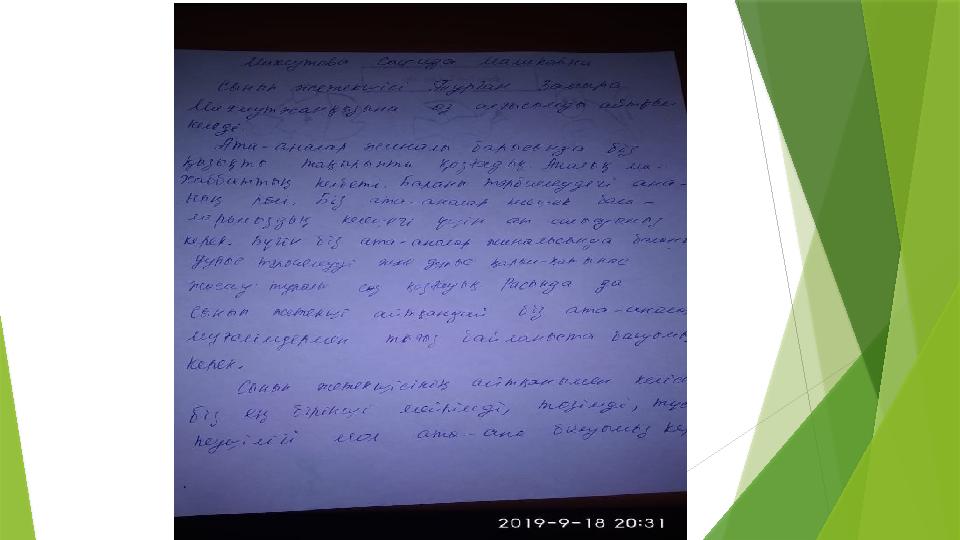 Махсутова Маликовна
Сынып жетекшісі Тұрған Замира
Махмутжанқызына өз алғысымды айтқым
келеді.
Ата-аналар жиналы барысында біз
қызықты тақырыпты қозғадық. Аналық ма-
хаббаттың келбеті. Баланы тәрбиелеудегі ана-
ның рөлі. Біз ата-аналар бала-
ларымыздың келешегі үшін ат салысуымыз
керек. Бүгін біз ата-аналар жиналысында баланы
дұрыс тәрбиелеуді және дұрыс қарым-қатынас
жасау туралы сөз қозғадық Расында да
сынып жетекші айтқандай біз ата-аналар
мұғалімдермен тығыз байланыста болуымыз
керек.
Сынып жетекшісінің айтқанымен келісе
біз ең бірінші мейірімді, төзімді,
мол ата-ана болуымыз
2019-9-18 20:31